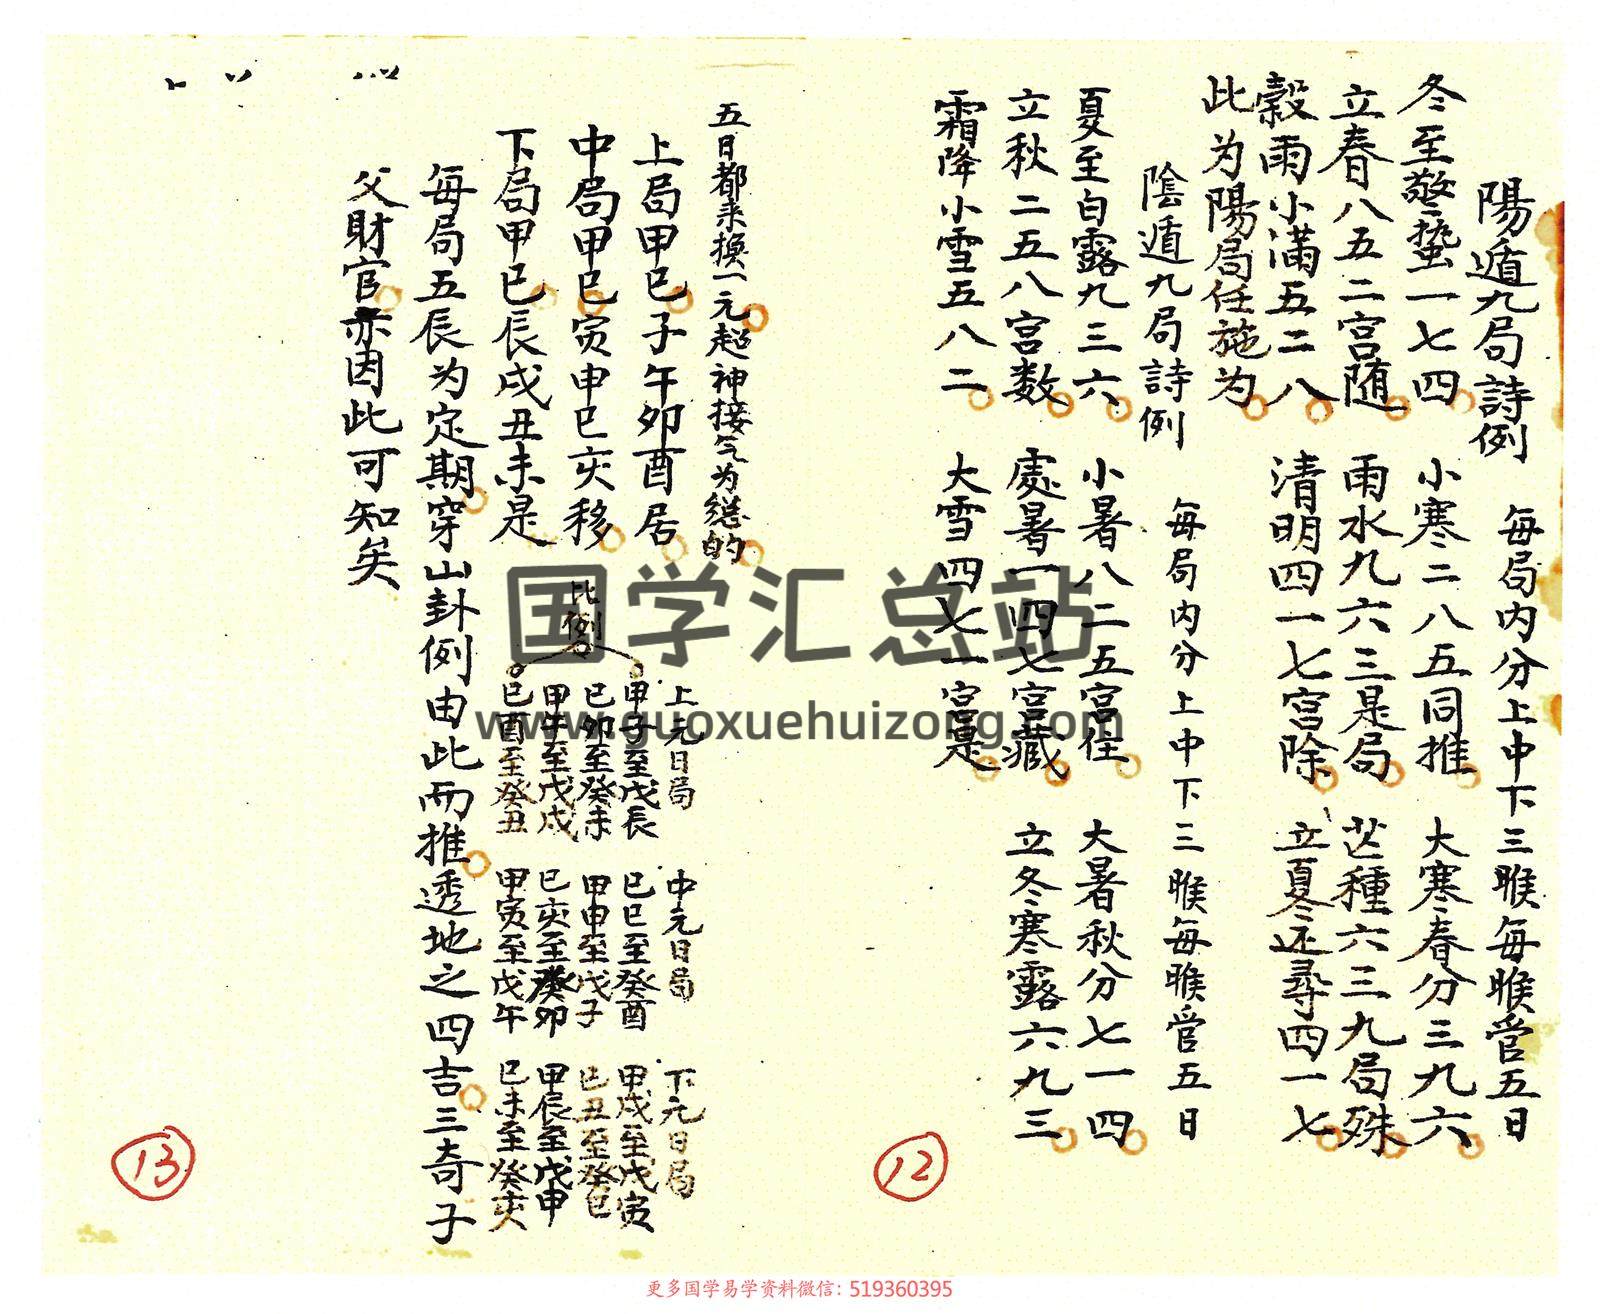 陽遁九局詩例　每局内分上中下三睺每睺管五日
冬至驚蛰一七四　小寒二八五同推　大寒春分三九六
立春八五二宫随　雨水九六三是局　芒種六三九局殊
穀雨小满五二八　清明四一七宫除　立夏还尋四一七
此为陽局任施为
陰遁九局詩例　每局内分上中下三睺每睺管五日
夏至白露九三六　小暑八二五宫住　大暑秋分七一四
立秋二五八宫数　處暑一四七宫藏　立冬寒露六九三
霜降小雪五八二　大雪四七一宫是
12
五日都来换一元超神接气为总的
上局甲巳子午卯酉居
中局甲巳寅申巳亥移
下局甲巳辰戌丑未是
比例
上元日局　中元日局　下元日局
甲子至戊辰　巳巳至癸酉　甲戌至戊寅
巳卯至癸未　甲申至戊子　巳丑至癸巳
甲午至戊戌　巳亥至癸卯　甲辰至戊申
巳酉至癸丑　甲寅至戊午　巳未至癸亥
每局五辰为定期穿山卦例由此而推透地之四吉三奇子
父財官亦因此可知矣
13
国学汇总站
www.guoxuehuizong.com
更多国学易学资料微信：519360395